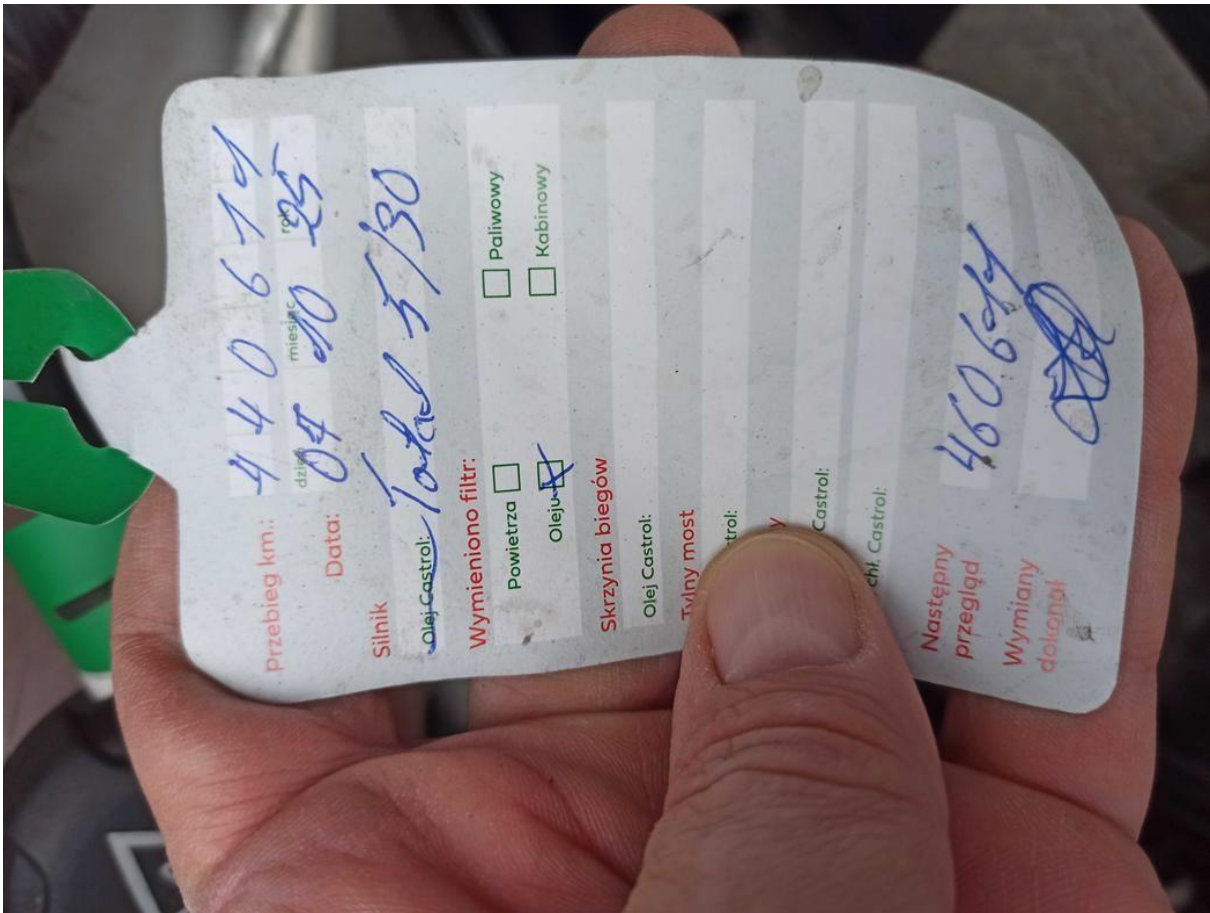 Przebieg km.: 4 4 0 6 1 1
dzień miesiąc rok
Data: 04 10 25
Silnik
Olej Castrol: Total 5/30
Wymieniono filtr:
Powietrza Paliwowy
Oleju X Kabinowy
Skrzynia biegów
Olej Castrol:
Tylny most
trol:
y
Castrol:
chł. Castrol:
Następny
przegląd 460611
Wymiany
dokonał